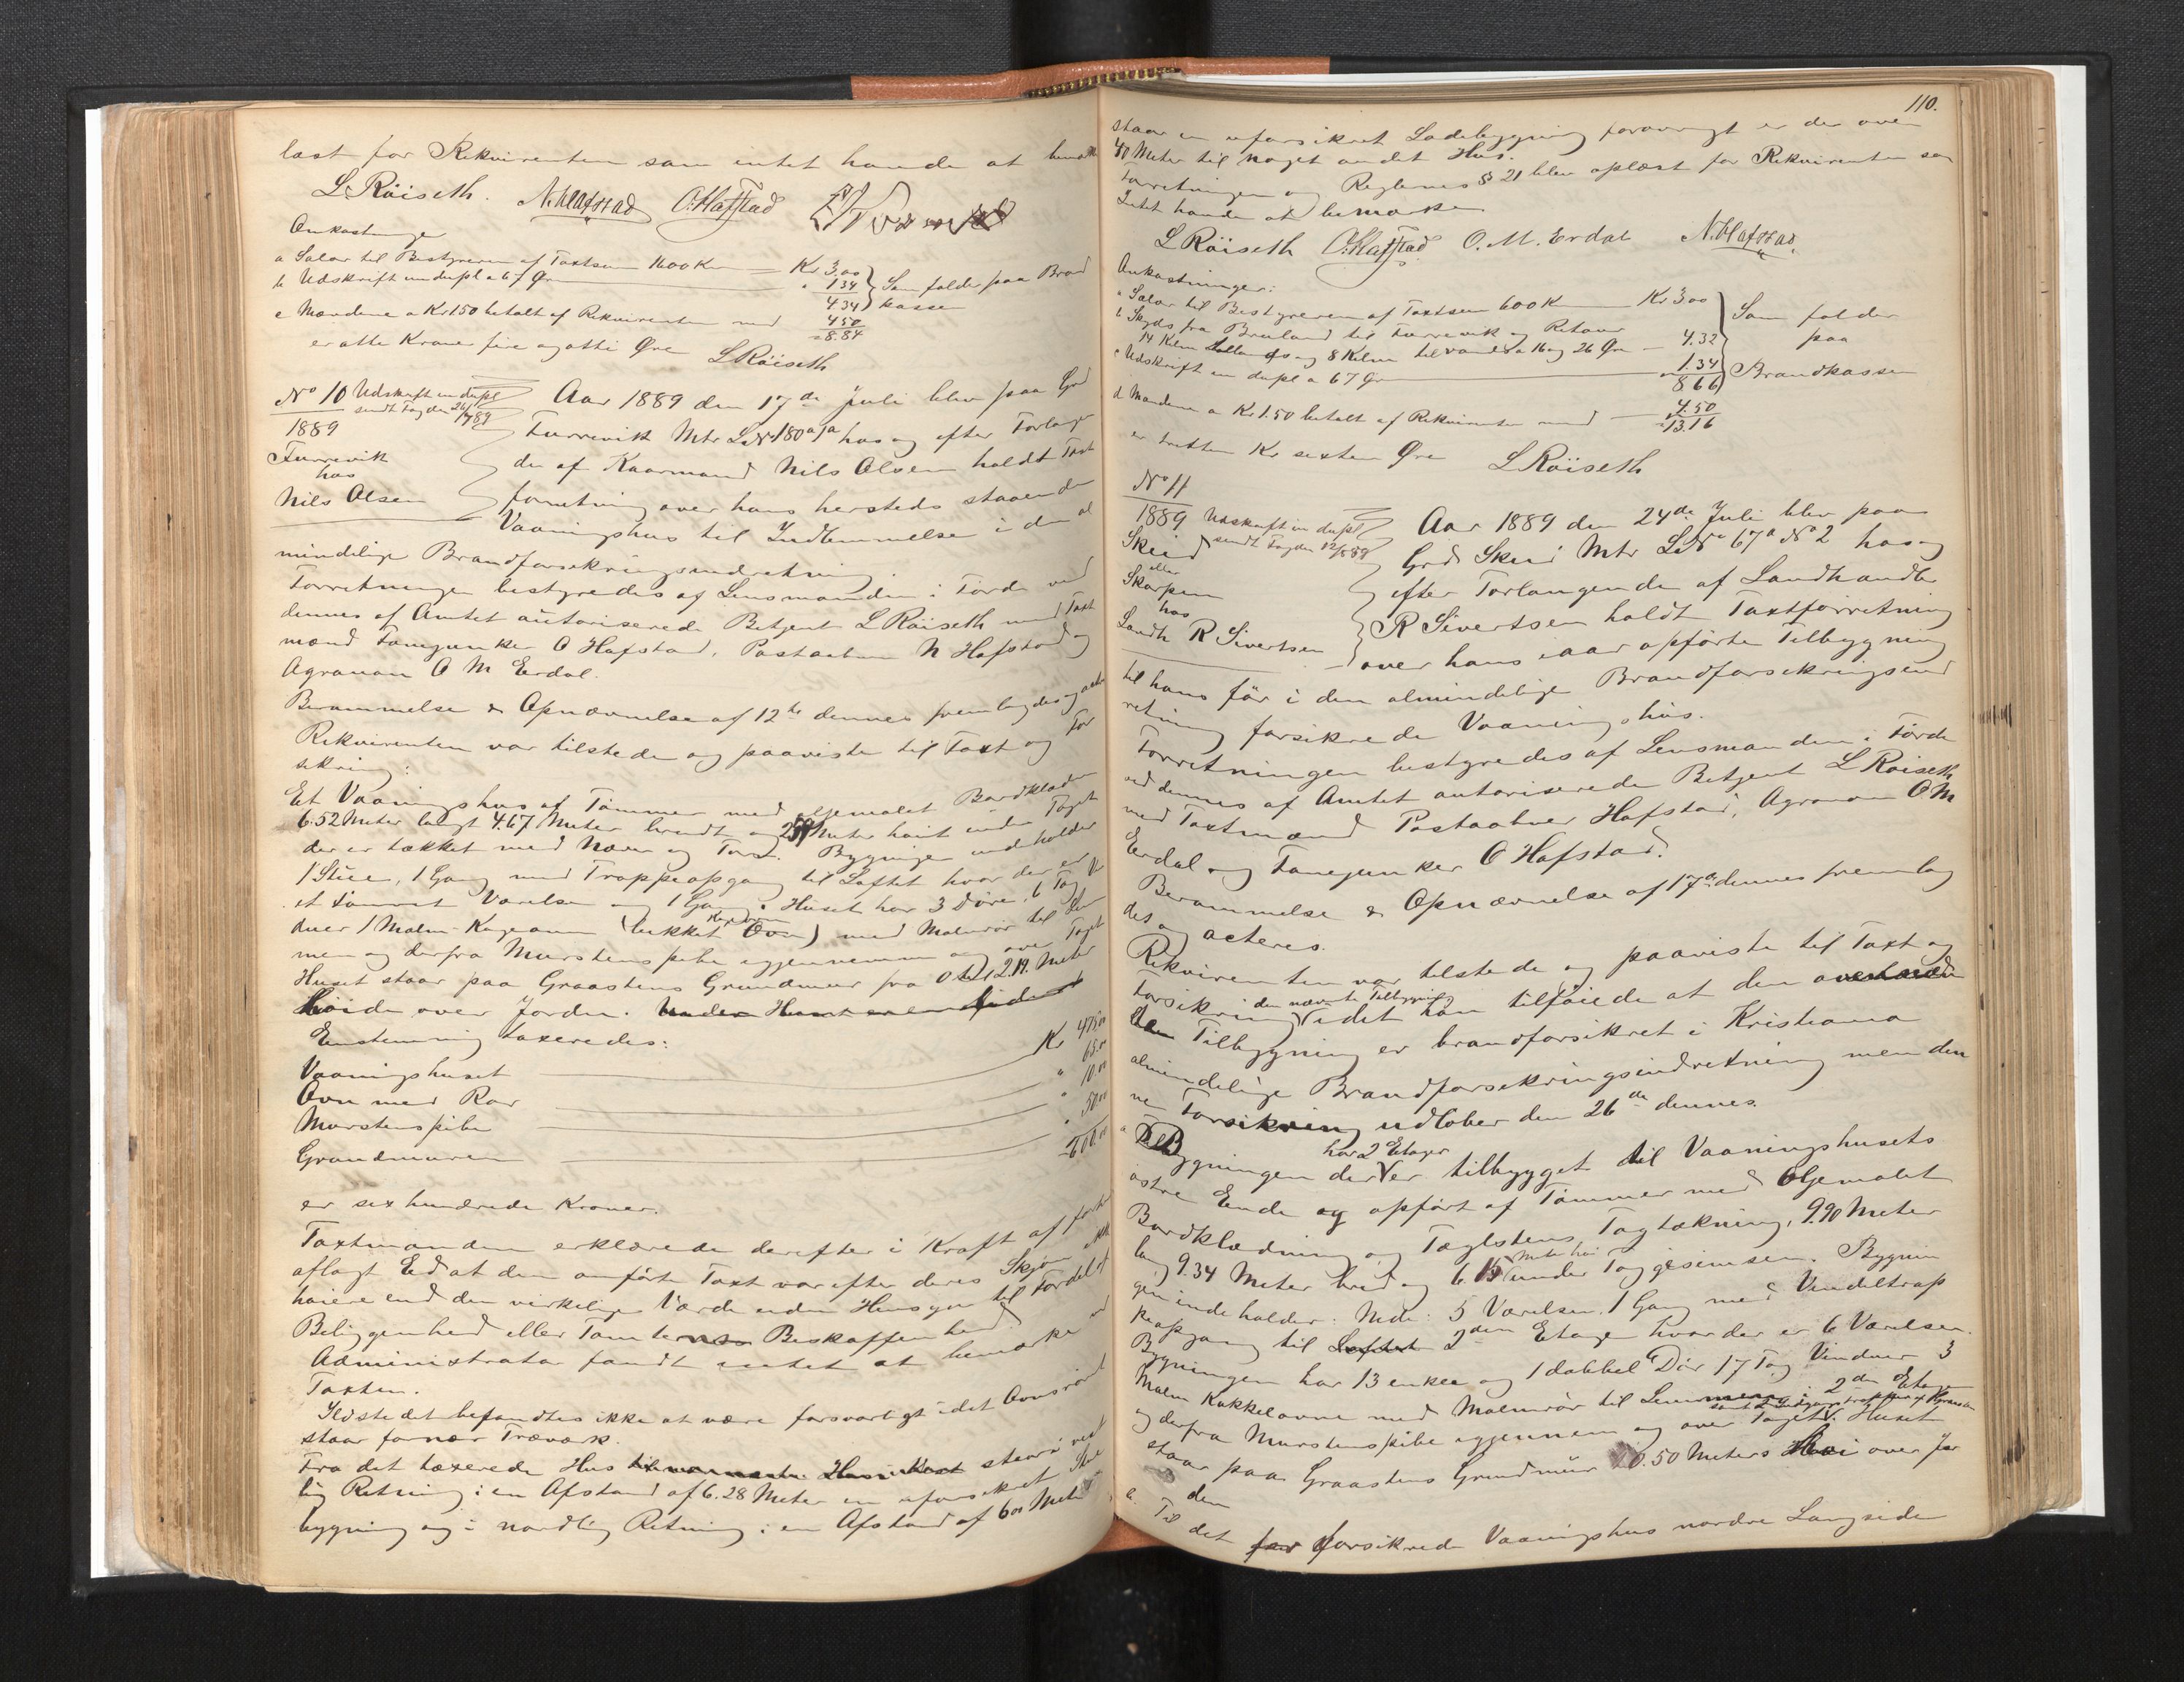 læst for Rekvirenten som intet havde at bemærke
L. Röiseth. N. Hafstad O. Hafstad
Omkostninger
a Salær til Bestyreren af Taxtsum 1600 Kr — Kr 3.00
b Udskrift in dupl a 67 Øre — " 1 34 } Som falder paa Brand
4 34 kassen
c Mændene a Kr 1 50 betalt af Rekvirenten med 4 50
= 8.84
er otte Kroner fire og otti Øre L Röiseth
No 10 Udskrift in dupl
sendt Fogden 26/7 89
1889
Furrevik
hos
Nils Olsen
Aar 1889 den 17de Juli blev paa Grd
Furrevik Mtr L.No 180 a 1a hos og efter Forlangen
de af Kaarmand Nils Olsen holdt Taxt
forretning over hans hersteds staaende
Vaaningshus til Indlemmelse i den al
mindelige Brandforsikringsindretning.
Forretningen bestyredes af Lensmanden i Förde ved
dennes af Amtet autoriserede Betjent L Röiseth med Taxt
mænd Fanejunker O Hafstad, Postaabner N Hafstad og
Agronom O M Erdal.
Berammelse & Opnævnelse af 12te dennes fremlagdes og acte
Rekvirenten var tilstede og paaviste til Taxt og For
sikring:
Et Vaaningshus af Tömmer med oljemalet Bordklædn
6.52 Meter langt 4.67 Meter bredt og Meter höit under Taget
der er tækket med Næver og Torv. Bygningen indeholder
1 Stue, 1 Gang med Trappeopgang til Loftet hvor der er
et tömret Værelse og 1 Gang. Huset har 3 Döre, 6 Fag Vin
duer 1 Malm (lukket Ovn) med Malmrör til Lem
men og derfra Murstenspibe igjennem og over Taget
Huset staar paa Graastens Grundmur fra 0 til 2.19. Meter
Höide over Jorden. Under Huset er en
Enstemmig taxeredes:
Vaaningshuset — Kr 475.00
Ovn med Rör — " 65.00
Murstenspibe — " 10.00
Grundmuren — " 50.00
= 600.00
er sex hundrede Kroner.
Taxtmændene erklærede derefter i Kraft af forhen
aflagt Ed at den anförte Taxt var efter deres Skjön ikke
höiere end den virkelige Værdi uden Hensyn til Fordel af
Beliggenhed eller Tomtens Beskaffenhed.
Administrator fandt intet at bemærke ved
Taxten.
Ildstedet befandtes ikke at være forsvarligt idet Ovnsröret
staar for nær Træværk.
Fra det taxerede Hus staar i vest
lig Retning i en Afstand af 6.28 Meter en uforsikret
bygning og i nordlig Retning i en Afstand af 600 Meter
110.
staar en uforsikret Ladebygning forøvrigt er der over
40 Meter til noget andet Hus.
Forretningen og Reglernes § 21 blev oplæst for Rekvirenten som
Intet havde at bemærke
L Röiseth O. Hafstad O. M. Erdal N. Hafstad.
Omkostninger:
a Salær til Bestyreren af Taxtsum 600 Kr — Kr 3 00
b Skyds fra Bruland til Furrevik og Retour
14 Klm tillands og 8 Kilm tilvands a 16 og 26 Øre — 4.32
c Udskrift in dupl a 67 Øre — " 1.34
8 66
Som falder
paa
Brandkassen
d Mændene a Kr 1.50 betalt af Rekvirenten med — 4.50
= 13.16
er tretten Kr sexten Øre L Röiseth
No 11
1889 Udskrift in dupl
sendt Fogden 12/8 89
Skeid
eller
Skarpen
hos
Landh R Sivertsen
Aar 1889 den 24de Juli blev paa
Grd Skei Mtr L.No 67a No 2 hos og
efter Forlangende af Landhandler
R Sivertsen holdt Taxtforretning
over hans iaar opförte Tilbygning
til hans för i den almindelige Brandforsikringsind
retning forsikrede Vaaningshus.
Forretningen bestyredes af Lensmanden i Förde
ved dennes af Amtet autoriserede Betjent L Röiseth
med Taxtmænd Postaabner Hafstad, Agronom O M
Erdal og Fanejunker O Hafstad.
Berammelse & Opnævnelse af 17de dennes fremlag
des og acteres.
Rekvirenten var tilstede og paaviste til Taxt og
Forsikring den nævnte Tilbygning idet han tilföiede at den
Tilbygning er brandforsikret i Kristiania
almindelige Brandforsikringsindretning men den
ne Forsikring udlöber den 26de dennes.
a Bygningen der har 2 Etager er tilbygget til Vaaningshusets
østre Ende og opfört af Tömmer med Oljemalet
Bordklædning og Taglstens Tagtækning, 9.90 Meter
lang 9.34 Meter bred og 6.15 Meter höi under Taggesimsen. Bygnin
gen indeholder: Nede: 5 Værelser. 1 Gang med Vindeltrap
peopgang til Loftet 2den Etage hvor der er 6 Værelser.
Bygningen har 13 enkle og 1 dobbel Dör 17 Fag Vinduer 3
Malm Kakkelovne med Malmrör til Lemmen i 2den Etage
og derfra Murstenspibe igjennem og over Taget. Huset
staar paa Graastens Grundmur 0.50 Meters Höi over Jor
den
b. Til det för forsikrede Vaaningshus nordre Langside